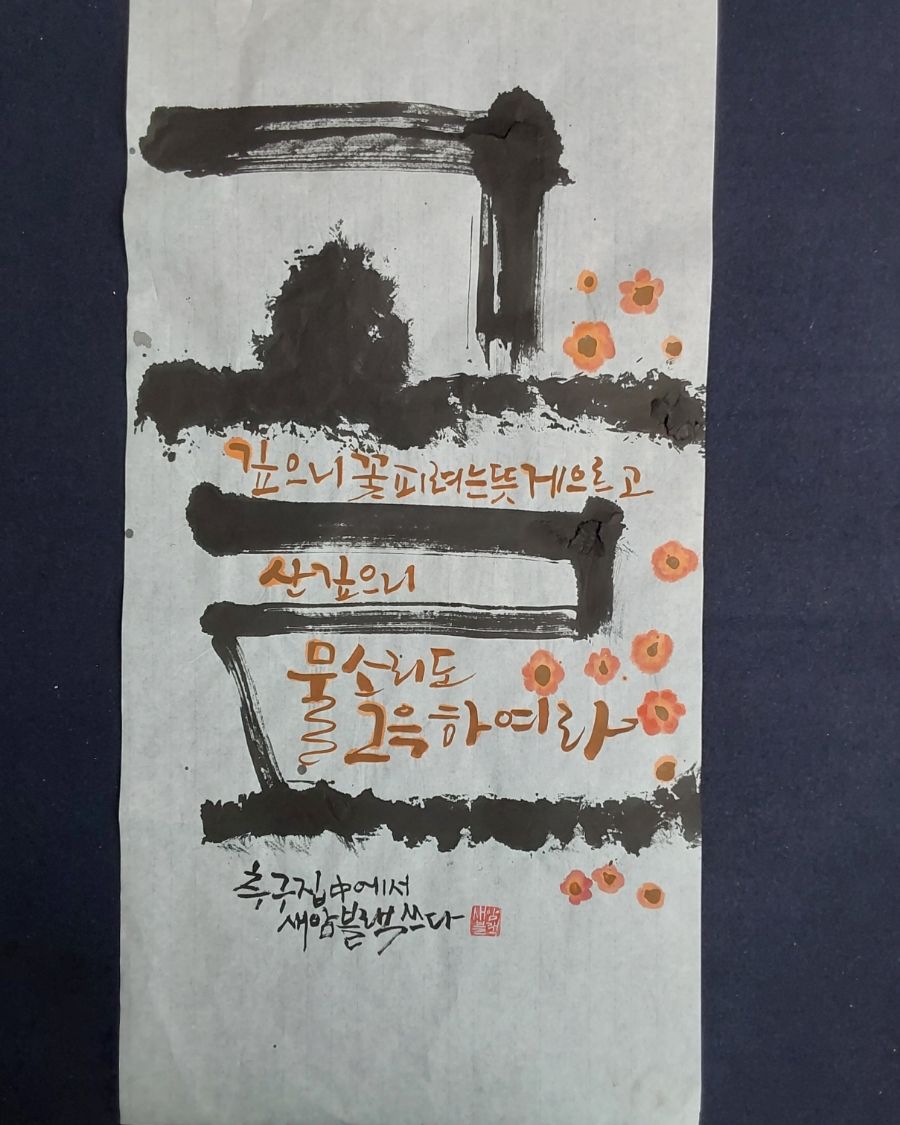 골
깊으니 꽃 피려는 뜻 게으르고
산 깊으니
물소리도
그윽하여라
추구집 中에서
새암블랙 쓰다
새암
블랙